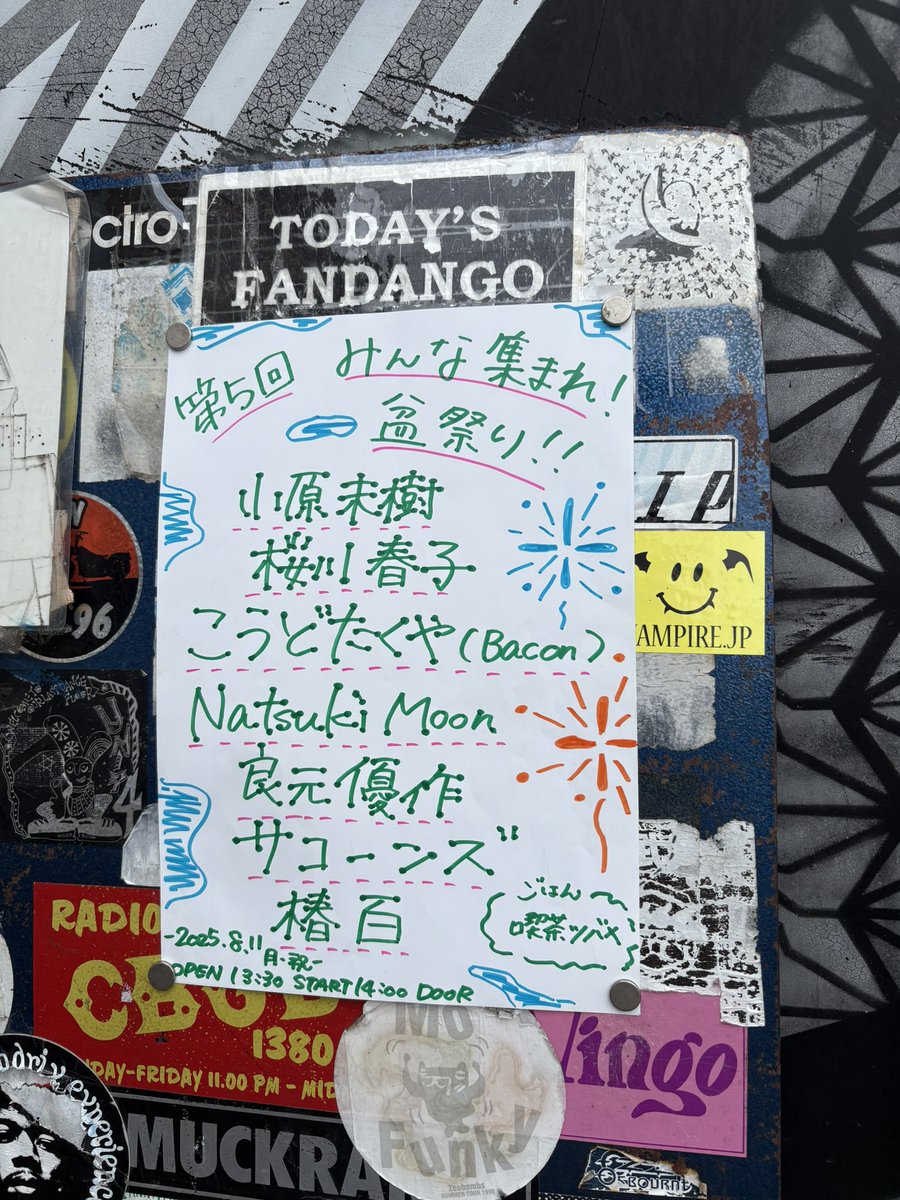 TODAY'S
FANDANGO
第5回 みんな集まれ!
盆祭り!!
小原未樹
桜川春子
こうどたくや(Bacon)
Natsuki Moon
良元優作
サコーンズ
椿百
ごはん
喫茶ツバメ
-2025.8.11
月・祝-
OPEN 13:30 START 14:00 DOOR
ctro
96
AMPIRE.JP
4
RADIO
CBGB
1380
DAY-FRIDAY 11.00 PM - MID
lingo
MUCKRA
Mo
Funky
Zoobombs
SUMMER-TOUR 1998